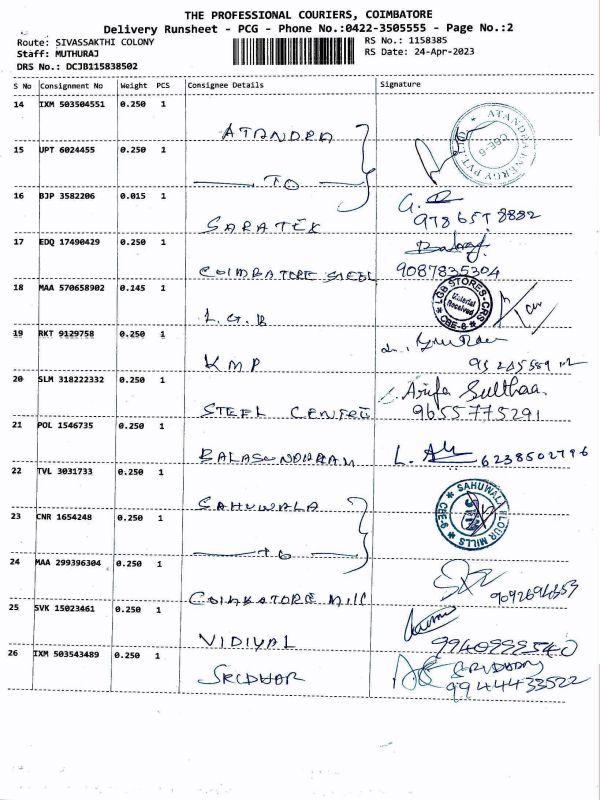 THE PROFESSIONAL COURIERS, COIMBATORE
Delivery Runsheet - PCG - Phone No.:0422-3505555 - Page No.:2
Route: SIVASSAKTHI COLONY RS No.: 1158385
Staff: MUTHURAJ RS Date: 24-Apr-2023
DRS No.: DCJB115838502
S No Consignment No Weight PCS Consignee Details Signature
14 IXM 503504551 0.250 1 ATANDRA
ATANDRA ENERGY PVT. LTD CBE-6
15 UPT 6024455 0.250 1 TO
16 BJP 3582206 0.015 1 SARATEK
978657 8882
17 EDQ 17490429 0.250 1 COIMBATORE STEEL
9087835304
18 MAA 570658902 0.145 1 L.G.B
LGB STORES-CRS Material Received CBE-6
19 RKT 9129758 0.250 1 KMP
20 SLM 318222332 0.250 1 STEEL CENTRE
Arifa Sulthaa.
9655775291
21 POL 1546735 0.250 1 BALASUNDARAM
6238502796
22 TVL 3031733 0.250 1 SAHUWALA
SAHUWALA FLOUR MILLS CBE-6
23 CNR 1654248 0.250 1 TO
24 MAA 299396304 0.250 1 COIMBATORE Mill
9092694653
25 SVK 15023461 0.250 1 VIDIYAL
9940992540
26 IXM 503543489 0.250 1 SRIDHAR
SRIDHAR
9944433522